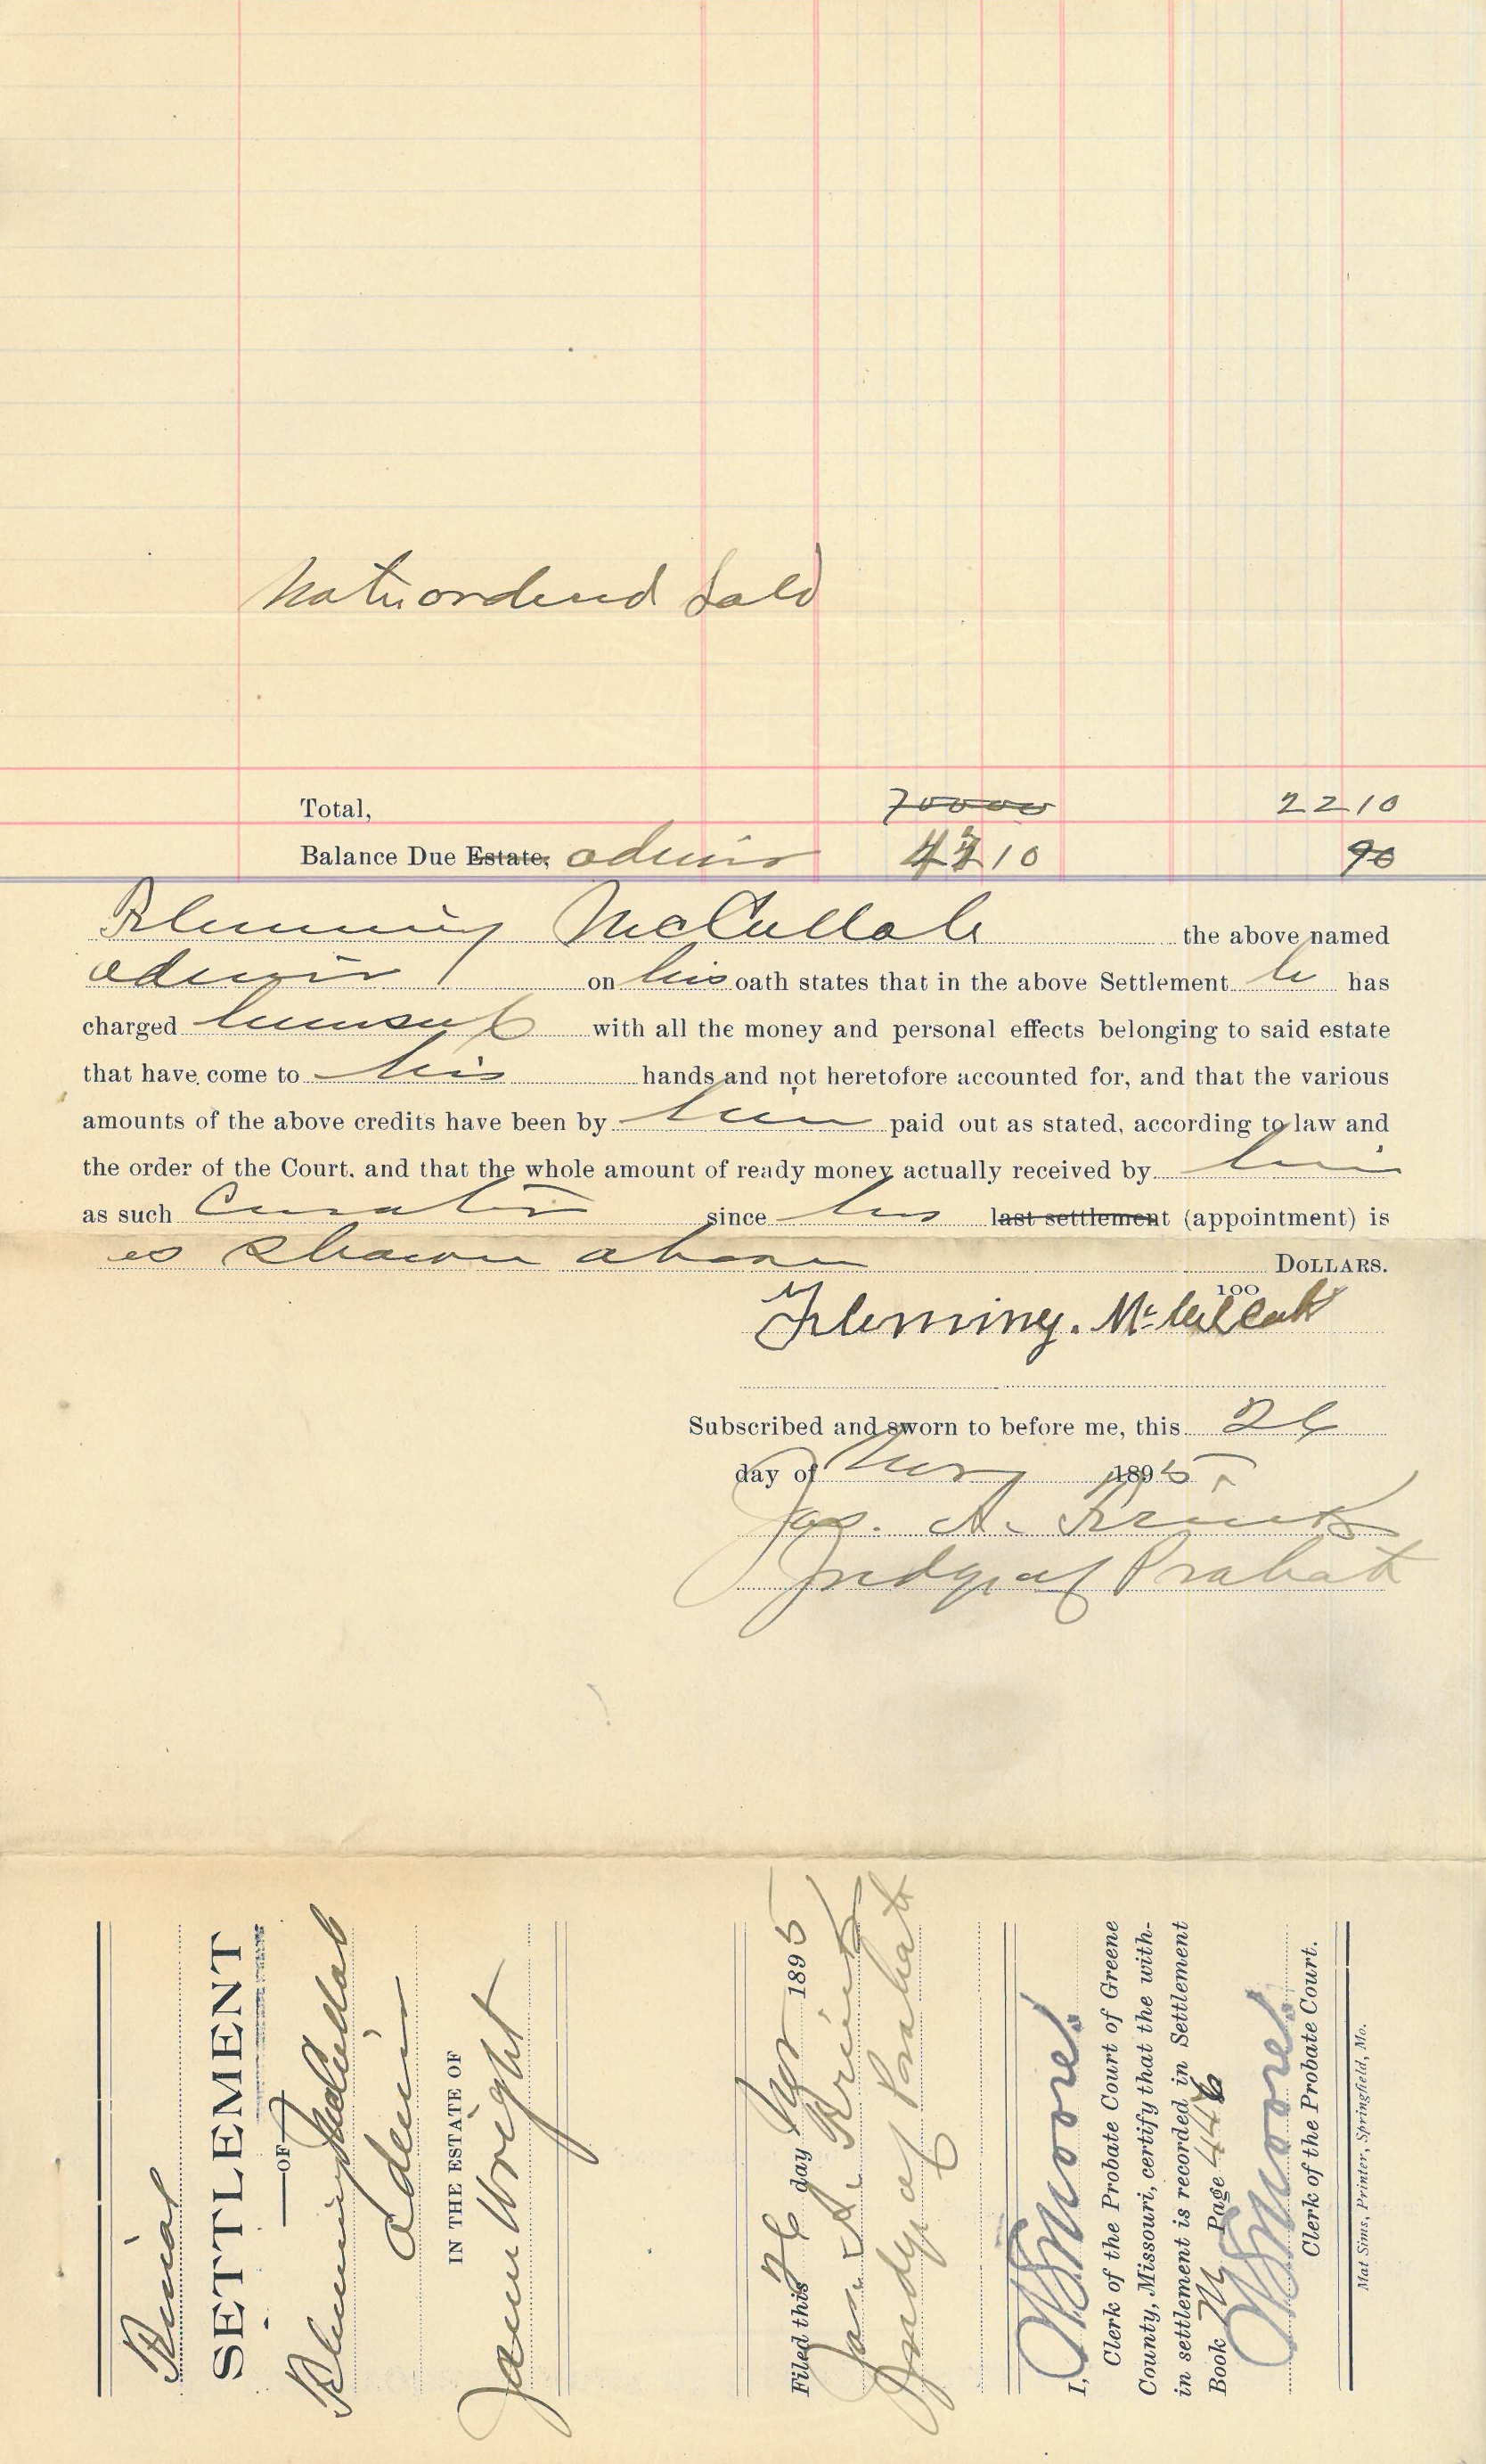 Note ordered sold
Total, 70000 2210
Balance Due Estate, admr 10 90
Flemming McCullah the above named
admr on his oath states that in the above Settlement he has
charged himself with all the money and personal effects belonging to said estate
that have come to his hands and not heretofore accounted for, and that the various
amounts of the above credits have been by him paid out as stated, according to law and
the order of the Court, and that the whole amount of ready money actually received by him
as such Curator since his last settlement (appointment) is
as shown above DOLLARS.
100
Fleming. McCullah
Subscribed and sworn to before me, this 26
day of Nov 1895.
Jas. A. Frink
Judge of Probate
Final
SETTLEMENT
—OF—
Flemming McCullah
Admr
IN THE ESTATE OF
Jane Wright
Filed this 26 day Nov 1895
Jas. A. Frink
Judge of Probate
I, Moore
Clerk of the Probate Court of Greene
County, Missouri, certify that the with-
in settlement is recorded in Settlement
Book M Page 446
Moore
Clerk of the Probate Court.
Mat Sims, Printer, Springfield, Mo.